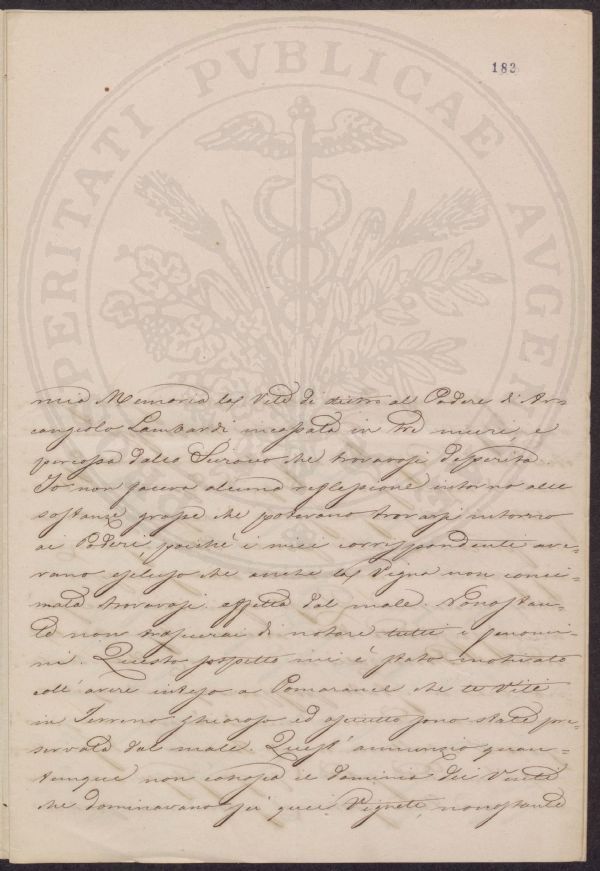 183
PROSPERITATI PVBLICAE AVGENDAE
mia Memoria la Vite di dietro al Podere di Ar=
cangiolo Lambardi incassata in tre muri, e
percossa dallo Scirocco che trovavasi deperita.
Io non faceva alcuna reflessione intorno alle
sostanze grasse che potevano trovarsi intorno
ai Poderi, poichè i miei corrispondenti ave=
vano escluso che anche la Vigna non conci=
mata trovavasi affetta dal male. Nonostan=
te non trascurai di notare tutti i fenomi=
ni. Questo sospetto mi è stato motivato
coll' avere inteso a Pomarance che le Viti
in Terreno ghiaroso ed asciutto sono state pre=
servate dal male. Quest' annunzio quan=
tunque non conosca il dominio dei Venti
che dominavano su quei Vigneti, nonostante